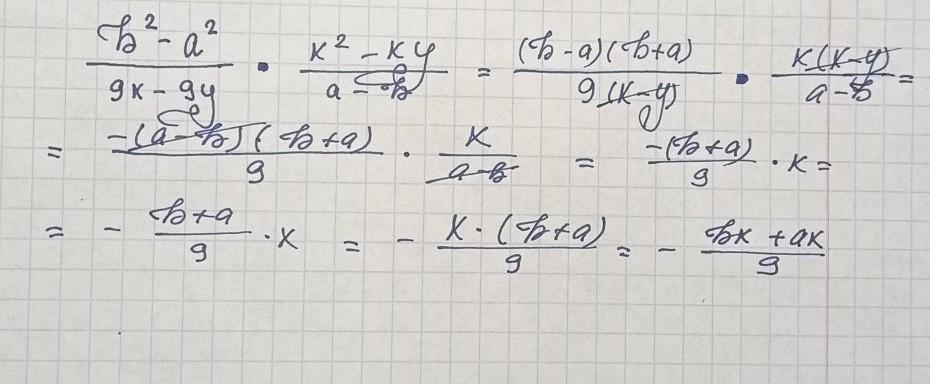 (b² - a²)/(9x - 9y) · (x² - xy)/(a - b) = ((b - a)(b + a))/(9(x - y)) · (x(x - y))/(a - b) =
= (-(a - b)(b + a))/9 · x/(a - b) = (-(b + a))/9 · x =
= - (b + a)/9 · x = - (x · (b + a))/9 = - (bx + ax)/9